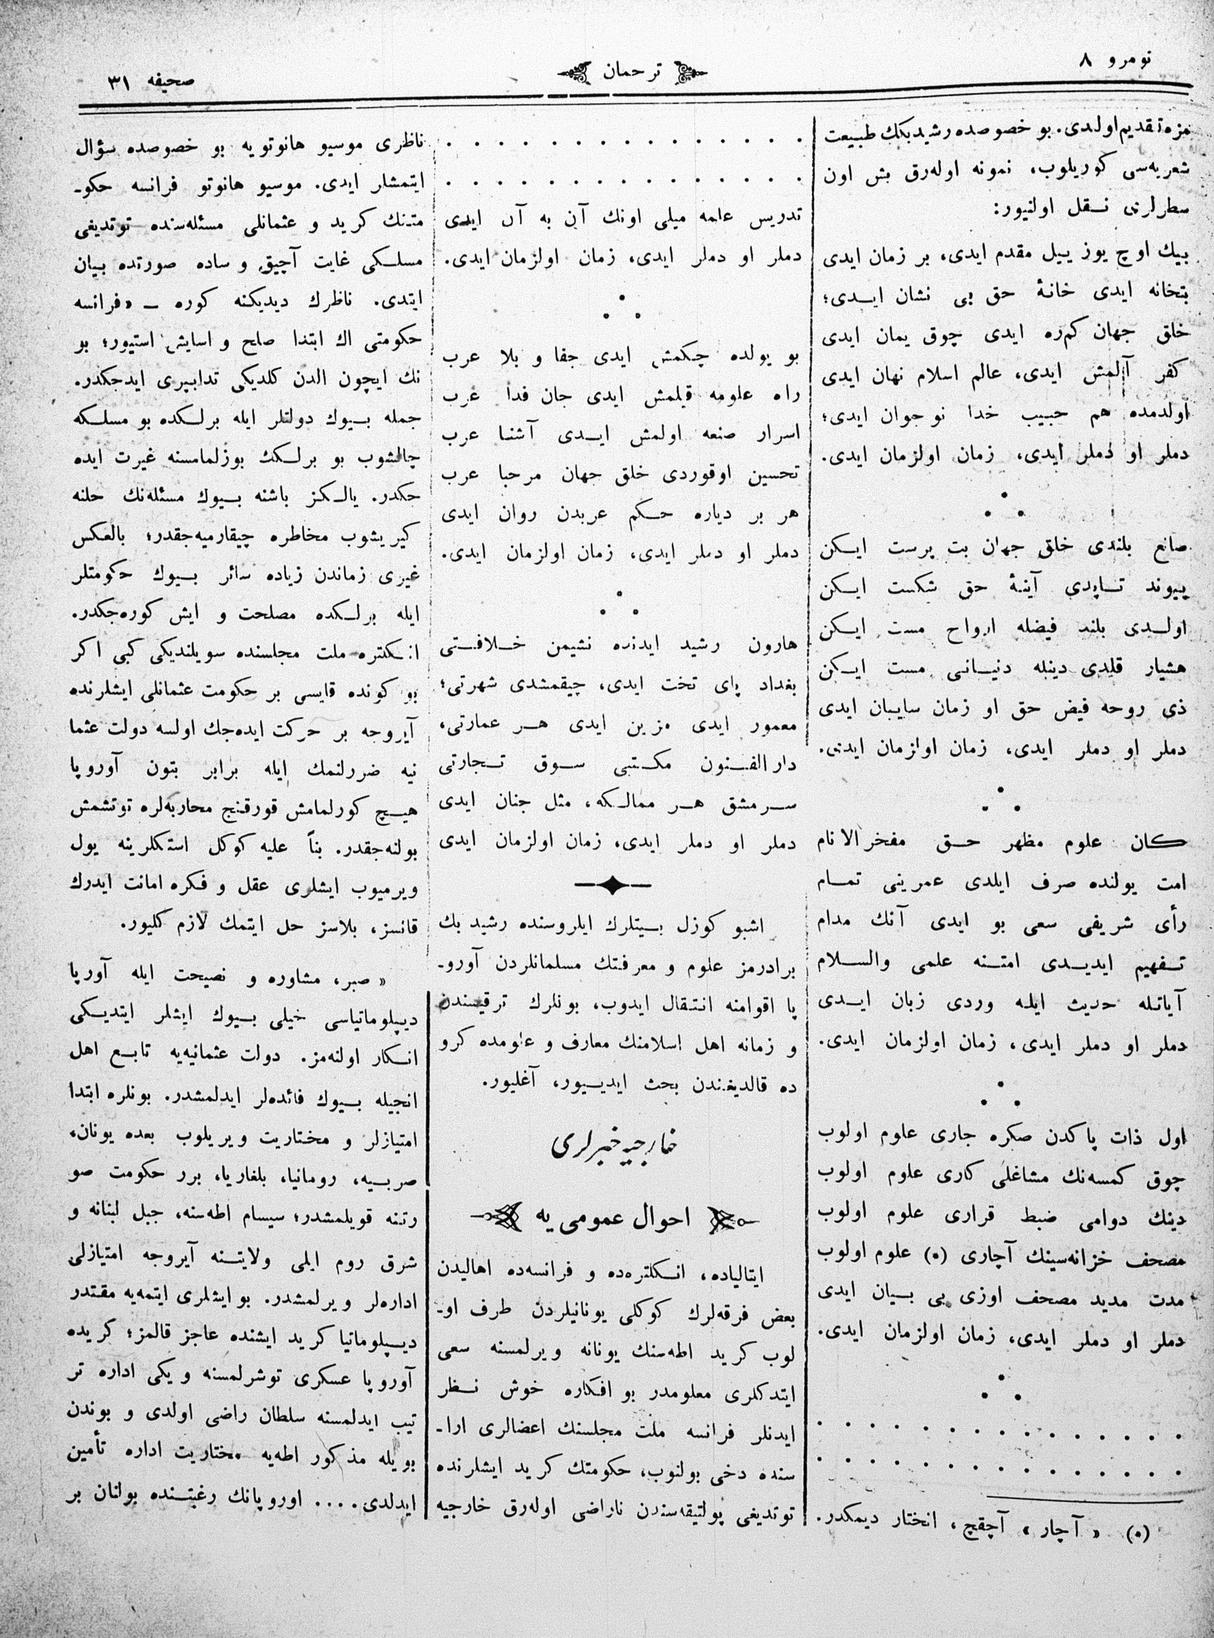 نومرو ٨
ترجمان
صحیفه ٣١
مزه تقدیم اولدی. بو خصوصده رشید بكك طبیعت
شعریه‌سی كوریلوب، نمونه اوله‌رق بش اون
سطرلری نقل اولنیور:
بیك اوچ یوز ییل مقدم ایدی، بر زمان ایدی
بتخانه ایدی خانهٔ حق بی نشان ایدی؛
خلق جهان كمره ایدی چوق یمان ایدی
كفر آلمش ایدی، عالم اسلام نهان ایدی
اولدمده هم حبیب خدا نوجوان ایدی؛
دملر او دملر ایدی، زمان اولزمان ایدی.
صانع بلندی خلق جهان بت پرست ایكن
پیوند تاپدی آینهٔ حق شكست ایكن
اولدی بلند فیضله ارواح مست ایكن
هشیار قلدی دینله دنیانی مست ایكن
ذی روحه فیض حق او زمان سایبان ایدی
دملر او دملر ایدی، زمان اولزمان ایدی.
كان علوم مظهر حق مفخر الانام
امت یولنده صرف ایلدی عمرینی تمام
رأی شریفی سعی بو ایدی آنك مدام
تفهیم ایدیدی امتنه علمی والسلام
آیاتله حدیث ایله وردی زبان ایدی
دملر او دملر ایدی، زمان اولزمان ایدی.
اول ذات پاكدن صكره جاری علوم اولوب
چوق كمسه‌نك مشاغلی كاری علوم اولوب
دینك دوامی ضبط قراری علوم اولوب
مصحف خزانه‌سینك آچاری (٠) علوم اولوب
مدت مدید مصحف اوزی بی بیان ایدی
دملر او دملر ایدی، زمان اولزمان ایدی.
. . . . . . . . . . . . . .
. . . . . . . . . . . . . .
(٠) « آچار » آچقچ، انختار دیمكدر.
. . . . . . . . . . . . . .
. . . . . . . . . . . . . .
تدریس علمه میلی اونك آن به آن ایدی
دملر او دملر ایدی، زمان اولزمان ایدی.
بو یولده چكمش ایدی جفا و بلا عرب
راه علومه قیلمش ایدی جان فدا عرب
اسرار صنعه اولمش ایدی آشنا عرب
تحسین اوقوردی خلق جهان مرحبا عرب
هر بر دیاره حكم عربدن روان ایدی
دملر او دملر ایدی، زمان اولزمان ایدی.
هارون رشید ایدنده نشیمن خلافتی
بغداد پای تخت ایدی، چیقمشدی شهرتی؛
معمور ایدی مزین ایدی هر عمارتی،
دارالفنون مكتبی سوق تجارتی
سرمشق هر ممالكه، مثل جنان ایدی
دملر او دملر ایدی، زمان اولزمان ایدی
اشبو كوزل بیتلرك ایلروسنده رشید بك
برادرمز علوم و معرفتك مسلمانلردن آورو-
پا اقوامنه انتقال ایدوب، بونلرك ترقیسندن
و زمانه اهل اسلامنك معارف و علومده كرو
ده قالدیغندن بحث ایدییور، آغلیور.
خارجیه خبرلری
احوال عمومی یه
ایتالیاده، انكلتره‌ده و فرانسه‌ده اهالیدن
بعض فرقه‌لرك كوكلی یونانیلردن طرف او-
لوب كرید اطه‌سنك یونانه ویرلمسنه سعی
ایتدكلری معلومدر بو افكاره خوش نظر
ایدنلر فرانسه ملت مجلسنك اعضالری ارا-
سنده دخی بولنوب، حكومتك كرید ایشلرنده
توتدیغی پولتیقه‌سندن ناراضی اوله‌رق خارجیه
ناظری موسیو هانوتویه بو خصوصده سؤال
ایتمشلر ایدی. موسیو هانوتو فرانسه حكو-
متینك كرید و عثمانلی مسئله‌سنده توتدیغی
مسلكی غایت آچیق و ساده صورتده بیان
ایتدی. ناظرك دیدیكنه كوره — «فرانسه
حكومتی اك ابتدا صلح و اسایش استیور؛ بو
نك ایچون الدن كلدیكی تدابیری ایدجكدر.
جمله بیوك دولتلر ایله برلكده بو مسلكه
چالشوب بو برلكك بوزلمامسنه غیرت ایده
جكدر. یالكز باشنه بیوك مسئله‌نك حلنه
كیریشوب مخاطره چیقارمیه‌جقدر؛ بالعكس
غیری زماندن زیاده سائر بیوك حكومتلر
ایله برلكده مصلحت و ایش كوره‌جكدر.
انكلتره ملت مجلسنده سویلندیكی كبی اكر
بو كونده قایسی بر حكومت عثمانلی ایشلرنده
آیروجه بر حركت ایده‌جك اولسه دولت عثما
نیه ضررلنمك ایله برابر بتون آوروپا
هیچ كورلمامش قورقنج محاربه‌لره توتشمش
بولنه‌جقدر. بناً علیه كوكل استكلرینه یول
ویرمیوب ایشلری عقل و فكره امانت ایدرك
قانسز، بلاسز حل ایتمك لازم كلیور.
« صبر، مشاوره و نصیحت ایله آوروپا
دیپلوماتیاسی خیلی بیوك ایشلر ایتدیكی
انكار اولنه‌مز. دولت عثمانیه‌یه تابع اهل
انجیله بیوك فائده‌لر ایدلمشدر. بونلره ابتدا
امتیازلر و مختاریت ویریلوب بعده یونان،
صربیه، رومانیا، بلغاریا، برر حكومت صو
رتنه قویلمشدر؛ سیسام اطه‌سنه، جبل لبنانه و
شرق روم ایلی ولایتنه آیروجه امتیازلی
اداره‌لر ویرلمشدر. بو ایشلری ایتمه‌یه مقتدر
دیپلوماتیا كرید ایشنده عاجز قالمز؛ كریده
آوروپا عسكری توشرلمسنه و یكی اداره تر
تیب ایدلمسنه سلطان راضی اولدی و بوندن
بویله مذكور اطه‌یه مختاریت اداره تأمین
ایدلدی.... اوروپانك رغبتنده بولنان بر